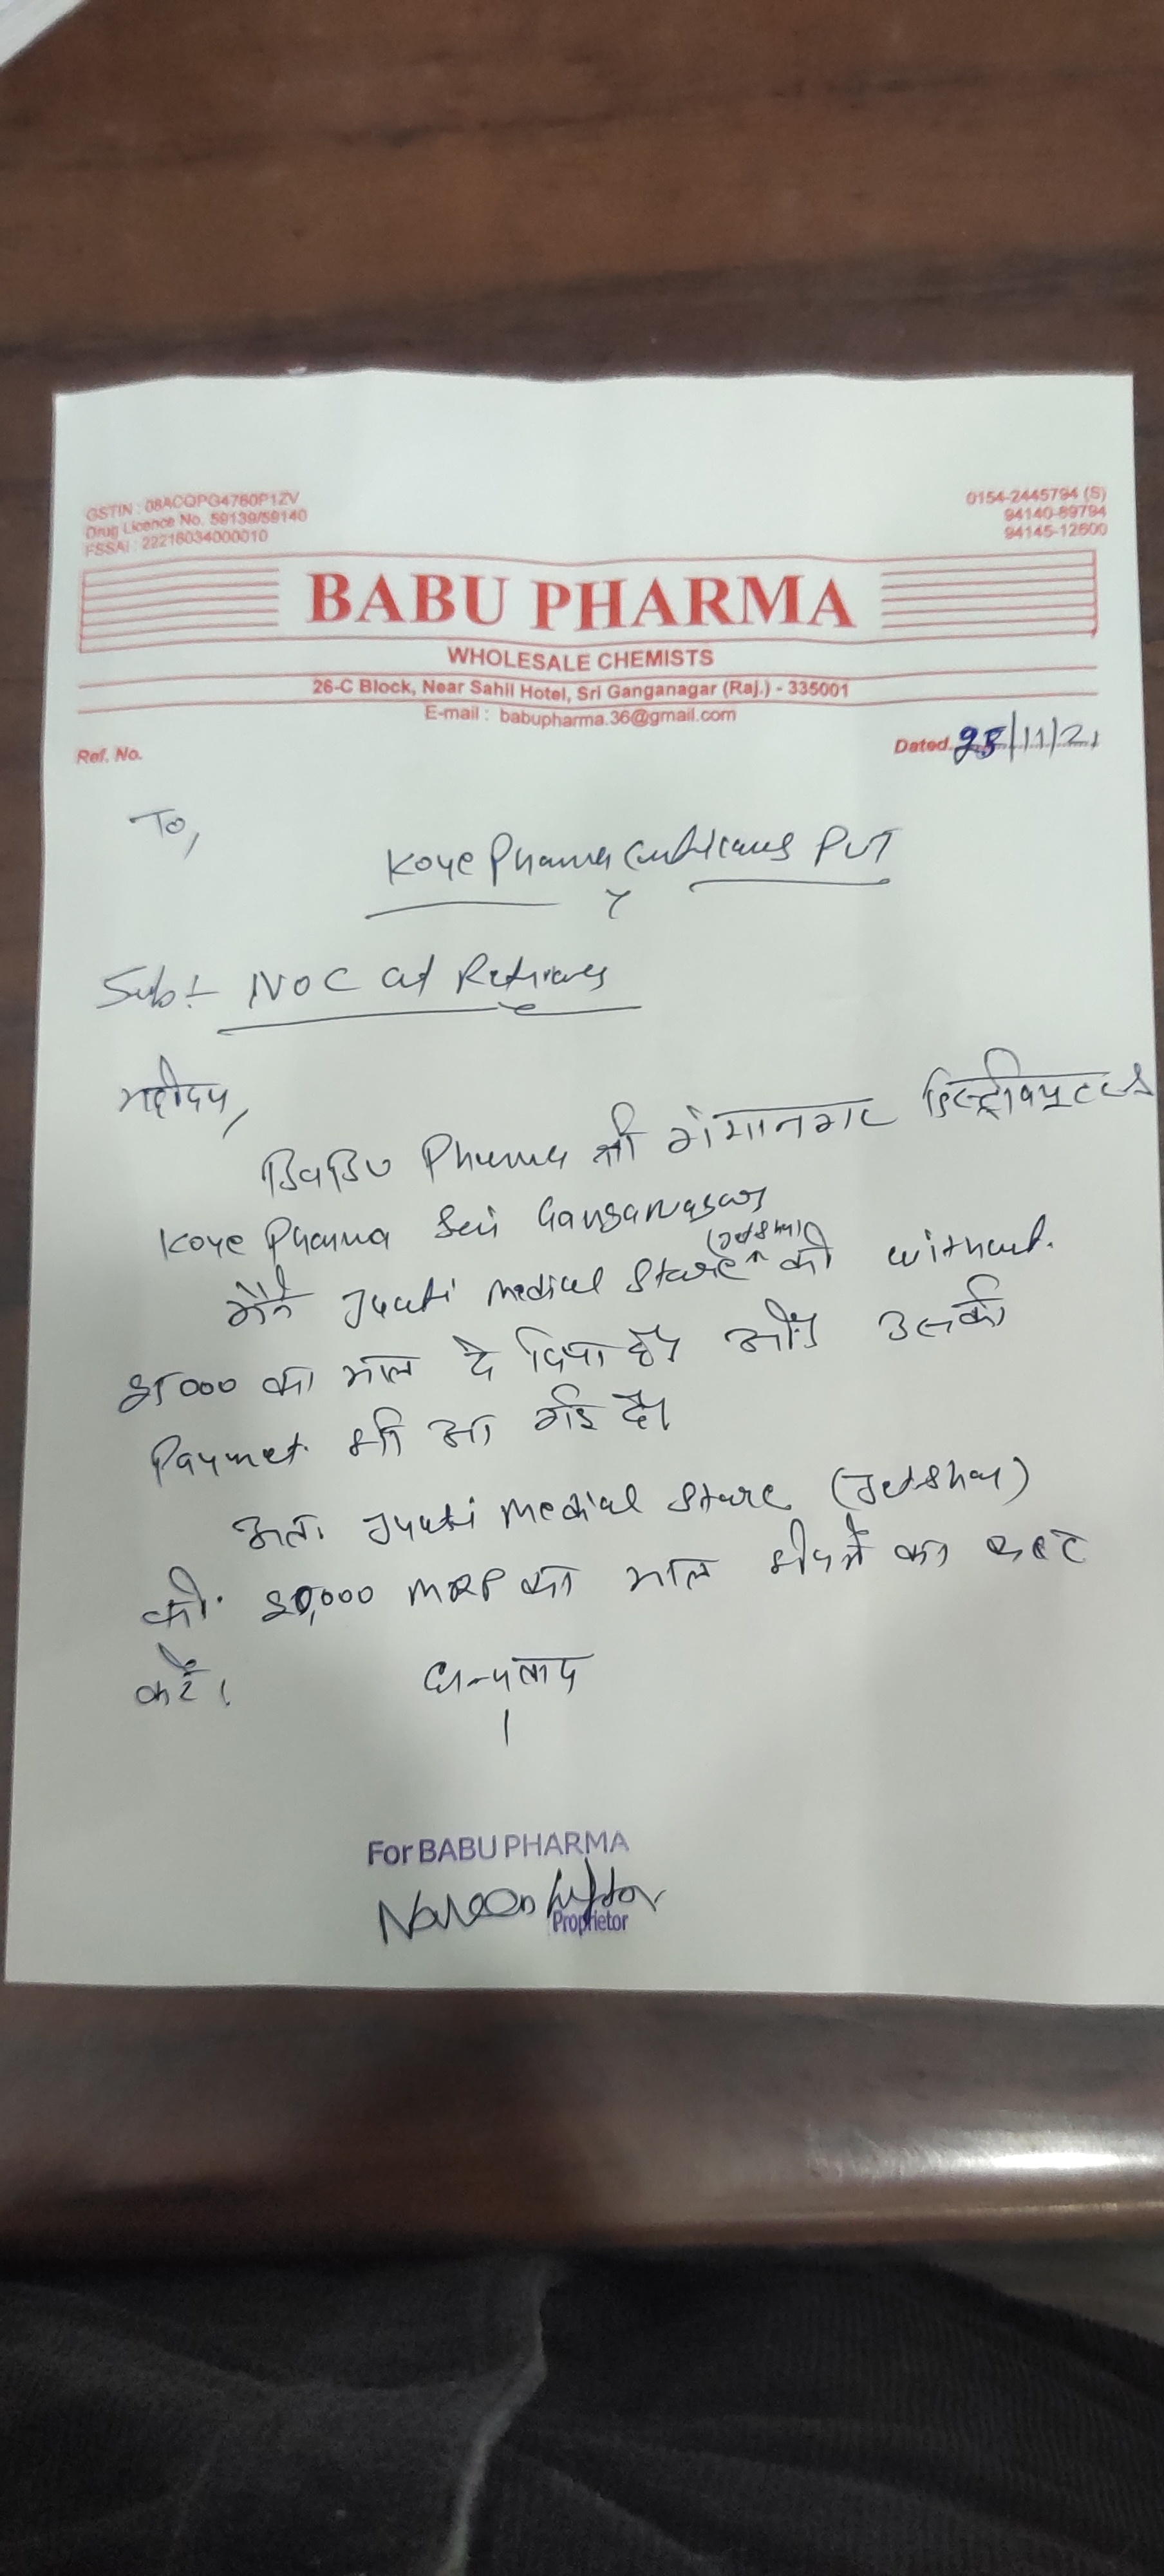 GSTIN : 08ACQPG4760P1ZV
Drug Licence No. 59139/59140
FSSAI : 22218034000010
0154-2445794 (S)
94140-89794
94145-12600
BABU PHARMA
WHOLESALE CHEMISTS
26-C Block, Near Sahil Hotel, Sri Ganganagar (Raj.) - 335001
E-mail : babupharma.36@gmail.com
Ref. No.
Dated 25/11/21
To,
Koye Pharma PVT
Sub:- NOC
महोदय,
BaBu Pharma श्री गंगानगर डिस्ट्रीब्यूटर
Koye Pharma Sri Ganganagar
मैंने Medical Store को without
का माल दे दिया है। और उसकी
Paymet भी आ गई है।
अतः Medical Store
को MRP का माल भेजने का कष्ट
करें।
धन्यवाद
For BABU PHARMA
Proprietor